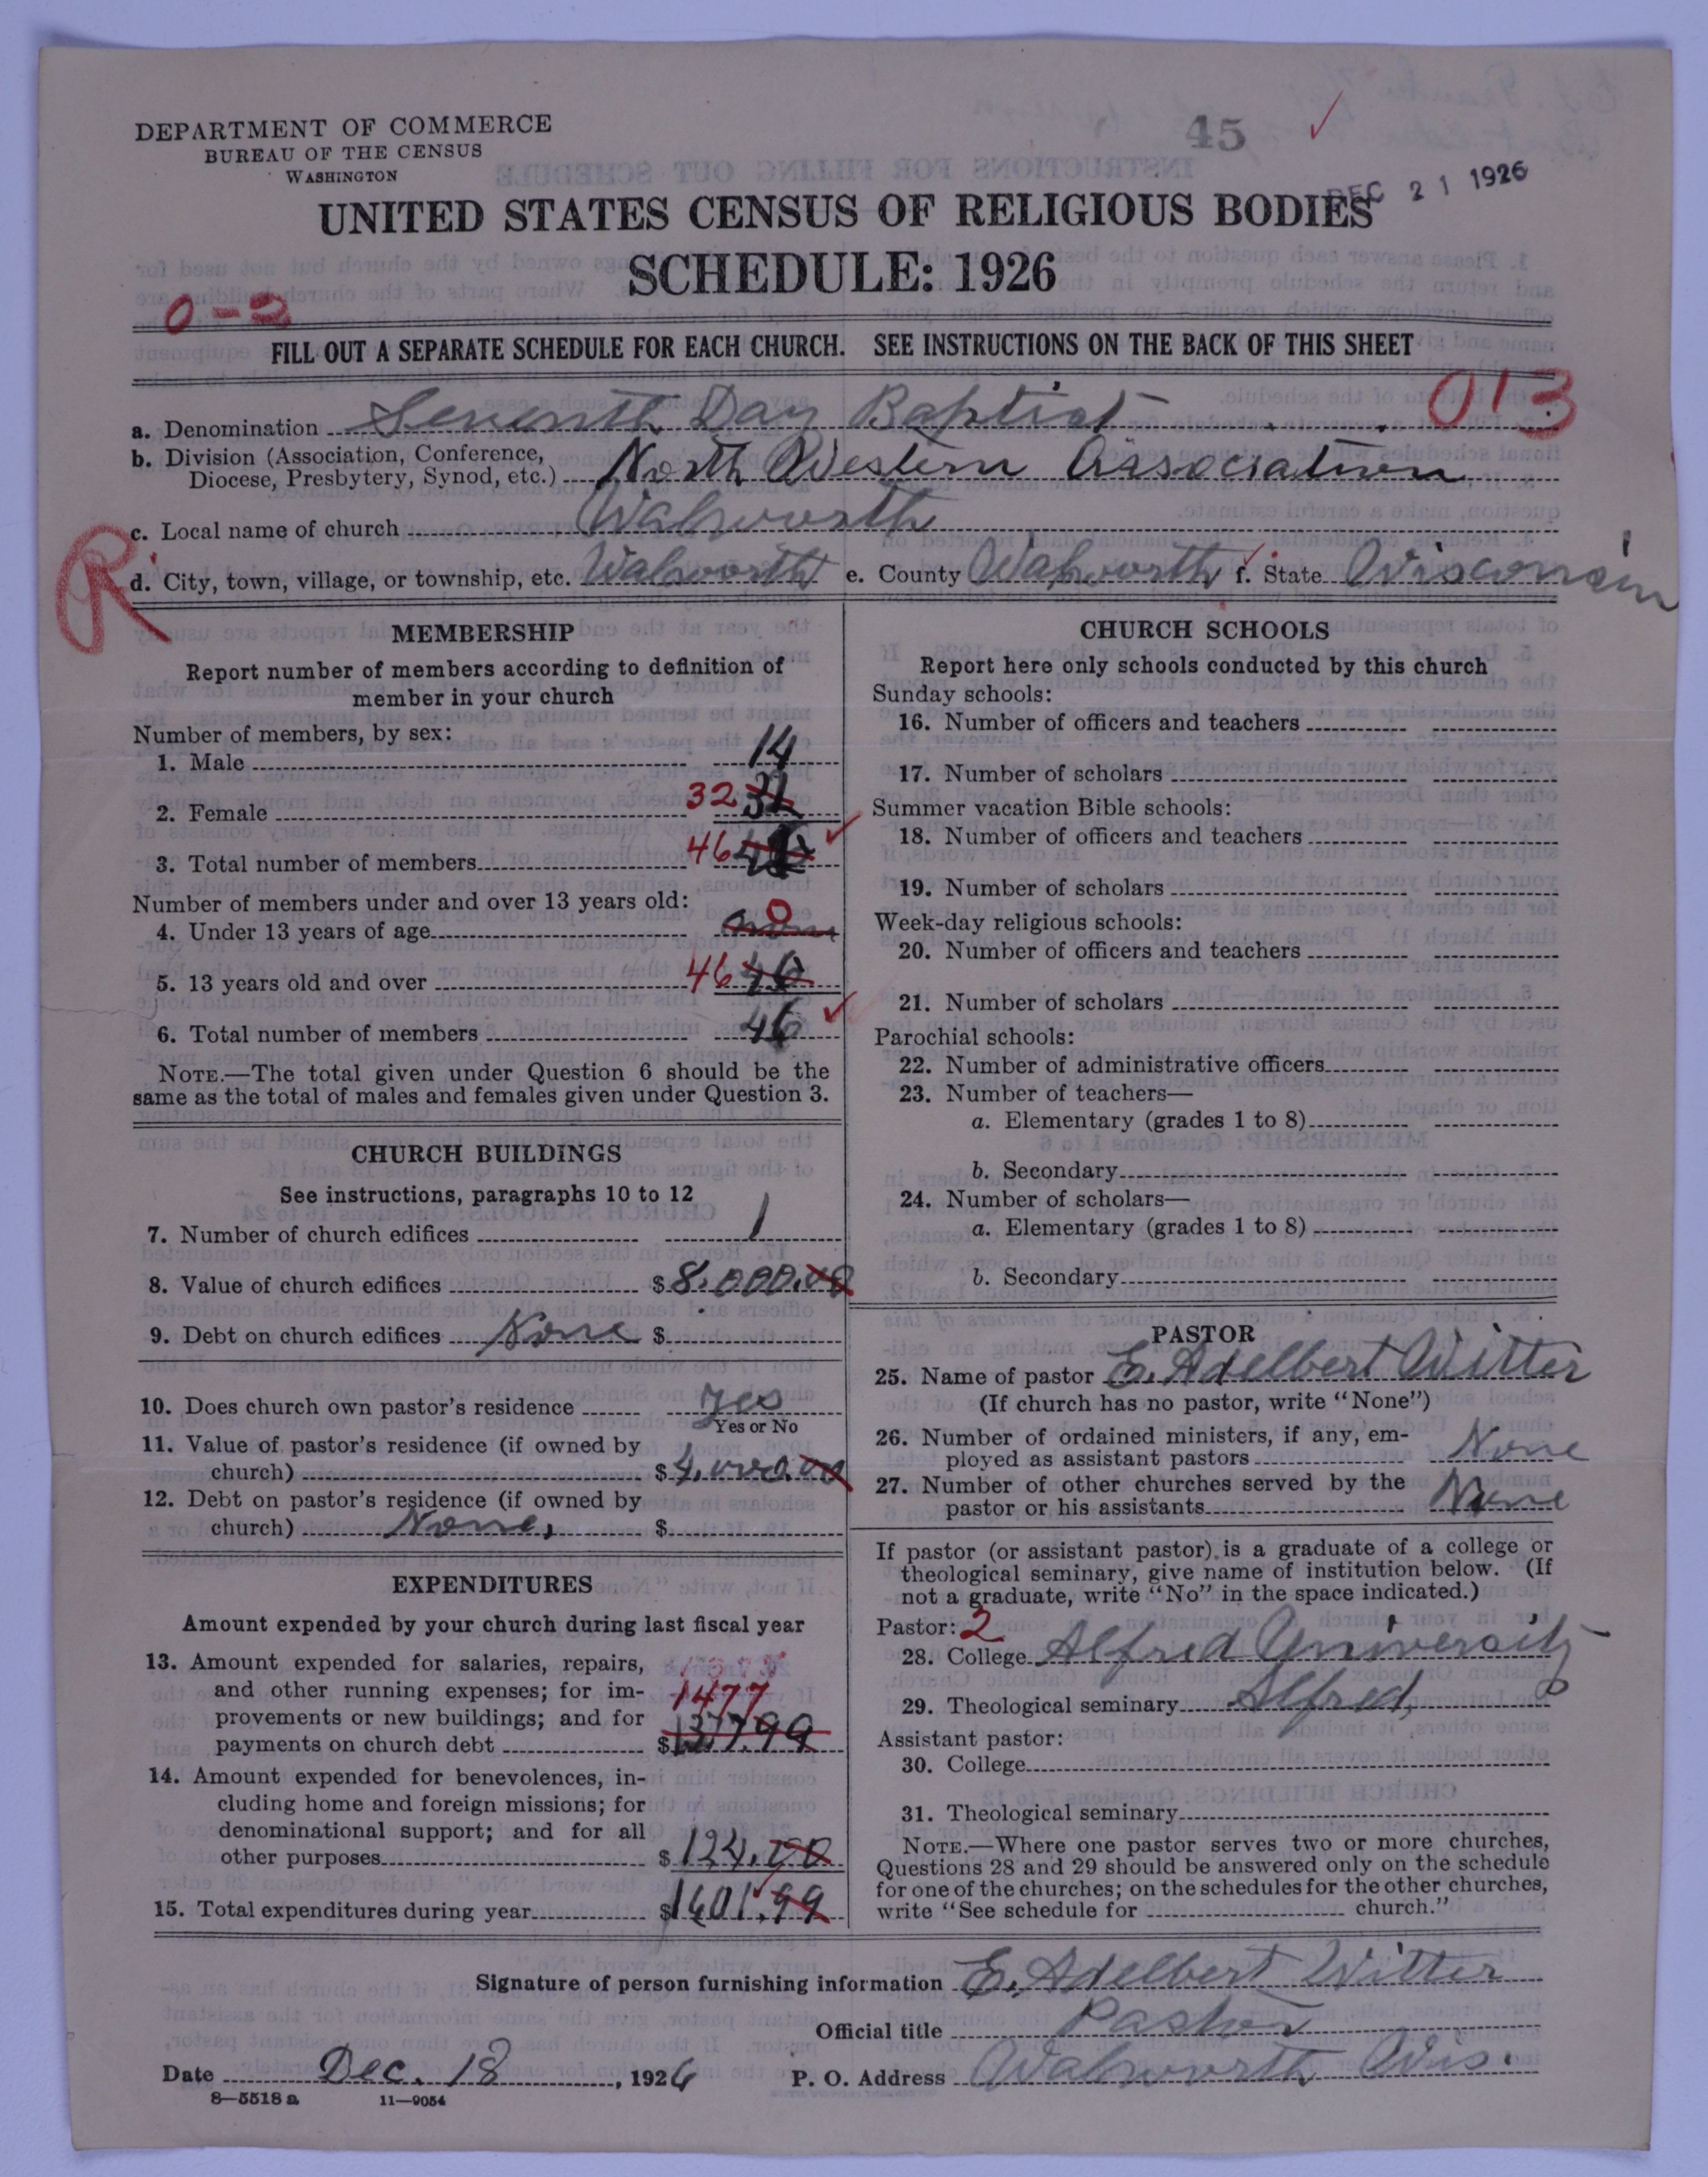 DEPARTMENT OF COMMERCE
BUREAU OF THE CENSUS
WASHINGTON
45
DEC 21 1926
UNITED STATES CENSUS OF RELIGIOUS BODIES
SCHEDULE: 1926
0-2
FILL OUT A SEPARATE SCHEDULE FOR EACH CHURCH. SEE INSTRUCTIONS ON THE BACK OF THIS SHEET
013
a. Denomination Seventh Day Baptist
b. Division (Association, Conference,
Diocese, Presbytery, Synod, etc.) North Western Association
c. Local name of church Walworth
R
d. City, town, village, or township, etc. Walworth e. County Walworth f. State Wisconsin
MEMBERSHIP
Report number of members according to definition of
member in your church
Number of members, by sex:
1. Male 14
2. Female 32
3. Total number of members 46
Number of members under and over 13 years old:
4. Under 13 years of age 0
5. 13 years old and over 46 46
6. Total number of members 46
NOTE.—The total given under Question 6 should be the
same as the total of males and females given under Question 3.
CHURCH BUILDINGS
See instructions, paragraphs 10 to 12
7. Number of church edifices 1
8. Value of church edifices $8,000.00
9. Debt on church edifices None $
10. Does church own pastor's residence yes
Yes or No
11. Value of pastor's residence (if owned by
church) $4,000.00
12. Debt on pastor's residence (if owned by
church) None, $
EXPENDITURES
Amount expended by your church during last fiscal year
13. Amount expended for salaries, repairs,
and other running expenses; for im-
1477
provements or new buildings; and for
payments on church debt $
14. Amount expended for benevolences, in-
cluding home and foreign missions; for
denominational support; and for all
other purposes $124.00
15. Total expenditures during year $1601.99
CHURCH SCHOOLS
Report here only schools conducted by this church
Sunday schools:
16. Number of officers and teachers
17. Number of scholars
Summer vacation Bible schools:
18. Number of officers and teachers
19. Number of scholars
Week-day religious schools:
20. Number of officers and teachers
21. Number of scholars
Parochial schools:
22. Number of administrative officers
23. Number of teachers—
a. Elementary (grades 1 to 8)
b. Secondary
24. Number of scholars—
a. Elementary (grades 1 to 8)
b. Secondary
PASTOR
25. Name of pastor E. Adelbert Witter
(If church has no pastor, write "None")
26. Number of ordained ministers, if any, em-
ployed as assistant pastors None
27. Number of other churches served by the
pastor or his assistants None
If pastor (or assistant pastor) is a graduate of a college or
theological seminary, give name of institution below. (If
not a graduate, write "No" in the space indicated.)
Pastor: 2
28. College Alfred University
29. Theological seminary Alfred,
Assistant pastor:
30. College
31. Theological seminary
NOTE.—Where one pastor serves two or more churches,
Questions 28 and 29 should be answered only on the schedule
for one of the churches; on the schedules for the other churches,
write "See schedule for church."
Signature of person furnishing information E. Adelbert Witter
Official title Pastor
Date Dec. 18, 1926 P. O. Address Walworth Wis.
8—5518 a 11—9054